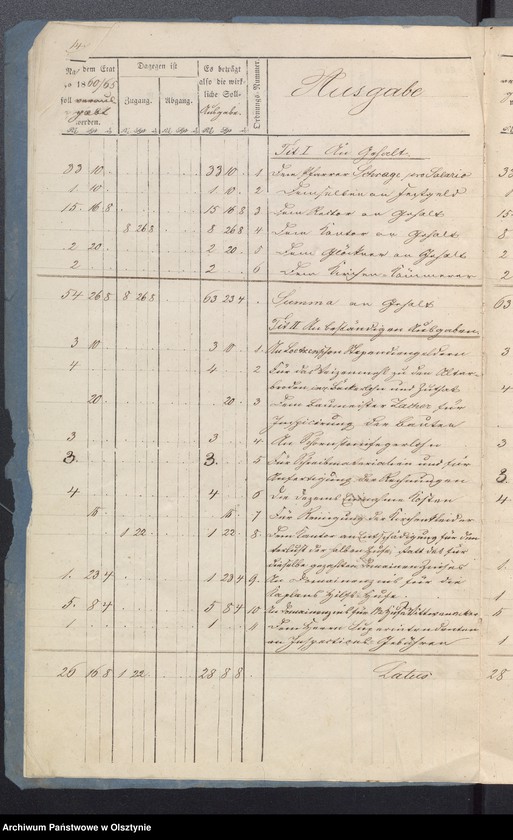 14
Nach dem Etat
in 1860/65
soll
werden.
Dagegen ist
Zugang. Abgang.
Es beträgt
also die wirk-
liche Soll-
Ausgabe.
Ordnungs-Nummer.
Ausgabe
Tit. I. An Gehalt.
33 10 . . . . 33 10 . 1 Dem Pfarrer Schwage pro Salario
1 10 . 1 10 . 2 Demselben an Festgeld
15 16 8 15 16 8 3 Dem Rektor an Gehalt
8 26 8 8 26 8 4 Dem Kantor an Gehalt
2 20 2 20 8 Dem Glöckner an Gehalt
2 2 6 Dem Kirchen-Kämmerer
54 26 8 8 26 8 63 23 4 Summa an Gehalt
Tit. II. An beständigen Ausgaben.
3 10 3 10 1
4 4 2 Für das Weizenmehl zu den Altar-
broden und Zuthat
20 20 3 Dem Baumeister Zacher für
Inspicirung der Bauten
3 3 4 An Schornsteinfegerlohn
3. 3. 5 Für Schreibmaterialien und für
Anfertigung der Rechnungen
4 4 6 Die Dezems Einnahme Kosten
15 15 7 Für Reinigung der Kirchenkleider
1 22 1 22 8 Dem Cantor an Entschädigung für den
Verlust der halben Hufe, statt des für
dieselbe gezahlten Domainen Zinses
1. 23 4 1 23 4 9. An Domainenzins für die
Kaplans Hilfs-Hufe
5. 8 4 5 8 4 10 An Domainenzins für
1 1 11 Dem Herrn Superintendenten
an Inspections Gebühren
26 16 8 1 22 28 8 8 Latus
28
Archiwum Państwowe w Olsztynie